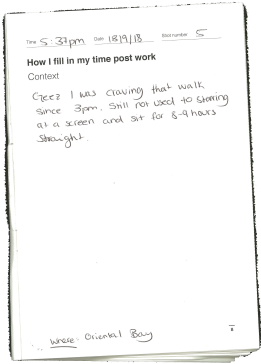 Time 5:37pm Date 18/9/18 Book number 5
How I fill in my time post work
Context
Geez I was craving that walk
since 3pm. Still not used to starring
at a screen and sit for 8-9 hours
straight.
Where: Oriental Bay